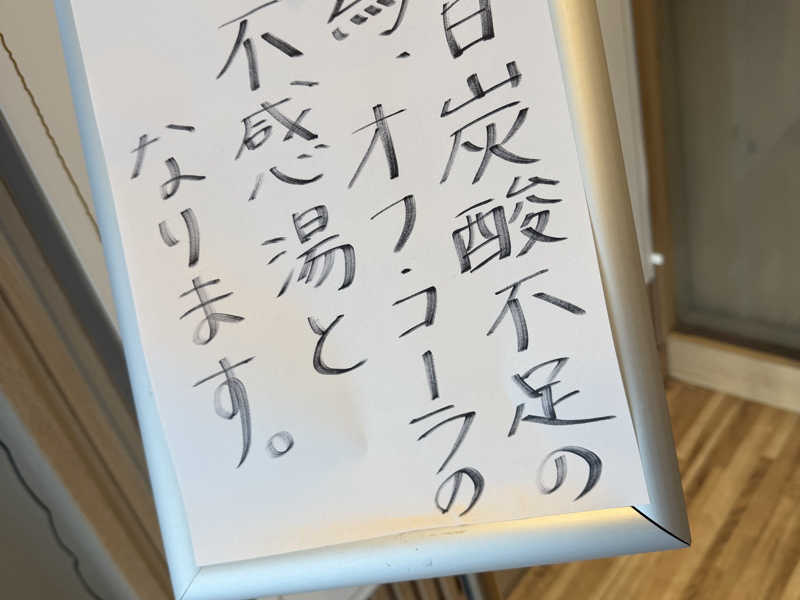 日炭酸不足の
為、オフ・コーラの
不感湯と
なります。